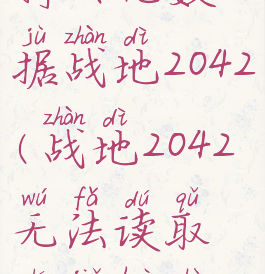 jù zhàn dì
据战地2042
zhàn dì
(战地2042
wú fǎ dú qǔ
无法读取